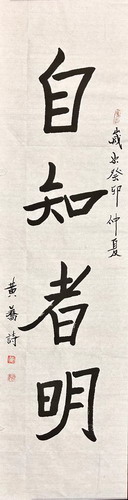 歲次癸卯仲夏
自知者明
黃舊詩